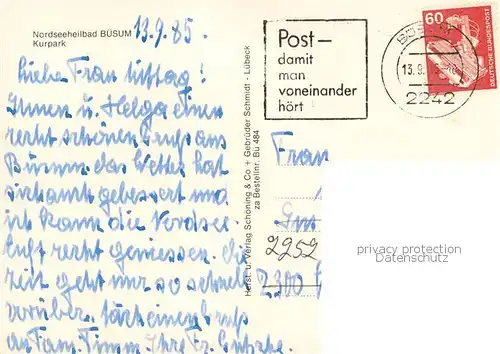 Nordseeheilbad BÜSUM
Kurpark
13.9.85.
Liebe Frau
Ihnen u. Helga einen
recht schönen Gruß aus
Büsum. das Wetter hat
sich auch gebessert und
ich kann die Nordsee
luft recht geniessen. Die
Zeit geht nur so schnell
vorüber.
an Fam. Timm. Ihre Fr.
Herst. u. Verlag Schöning & Co + Gebrüder Schmidt - Lübeck
za Bestellnr. Bü 484
Post –
damit
man
voneinander
hört
13.9.
2242
60
DEUTSCHE BUNDESPOST
Frau
2252
2300
privacy protection
Datenschutz